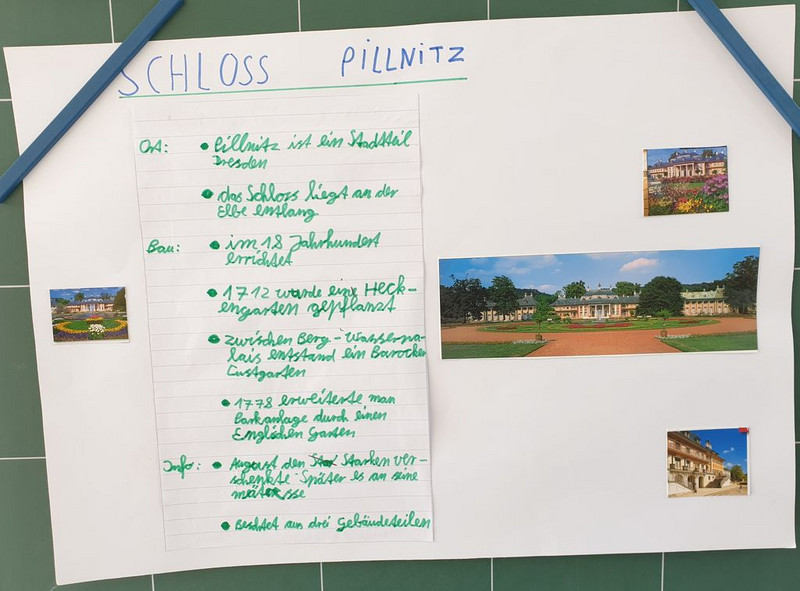 SCHLOSS PILLNiTZ
Ort: • Pillnitz ist ein Stadtteil
Dresden
• das Schloss liegt an der
Elbe entlang
Bau: • im 18 Jahrhundert
errichtet
• 1712 wurde eine Heck-
engarten gepflanzt
• zwischen Berg - Wasserpa-
lais entstand ein Barocker
Lustgarten
• 1778 erweiterte man
Parkanlage durch einen
Englichen Garten
Info: • August den Starken ver-
schenkte Später es an seine
mätresse
• Beshtet aus drei Gebäudeteilen